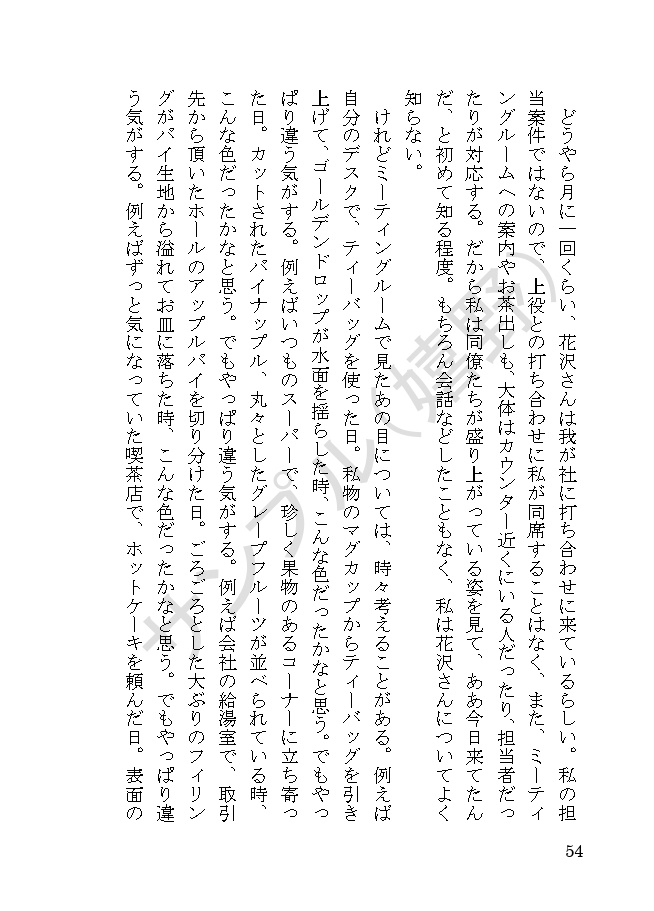 どうやら月に一回くらい、花沢さんは我が社に打ち合わせに来ているらしい。私の担
当案件ではないので、上役との打ち合わせに私が同席することはなく、また、ミーティ
ングルームへの案内やお茶出しも、大体はカウンター近くにいる人だったり、担当者だっ
たりが対応する。だから私は同僚たちが盛り上がっている姿を見て、ああ今日来てたん
だ、と初めて知る程度。もちろん会話などしたこともなく、私は花沢さんについてよく
知らない。
　けれどミーティングルームで見たあの目については、時々考えることがある。例えば
自分のデスクで、ティーバッグを使った日。私物のマグカップからティーバッグを引き
上げて、ゴールデンドロップが水面を揺らした時、こんな色だったかなと思う。でもやっ
ぱり違う気がする。例えばいつものスーパーで、珍しく果物のあるコーナーに立ち寄っ
た日。カットされたパイナップル、丸々としたグレープフルーツが並べられている時、
こんな色だったかなと思う。でもやっぱり違う気がする。例えば会社の給湯室で、取引
先から頂いたホールのアップルパイを切り分けた日。ごろごろとした大ぶりのフィリン
グがパイ生地から溢れてお皿に落ちた時、こんな色だったかなと思う。でもやっぱり違
う気がする。例えばずっと気になっていた喫茶店で、ホットケーキを頼んだ日。表面の
サンプル(嬉野)
54